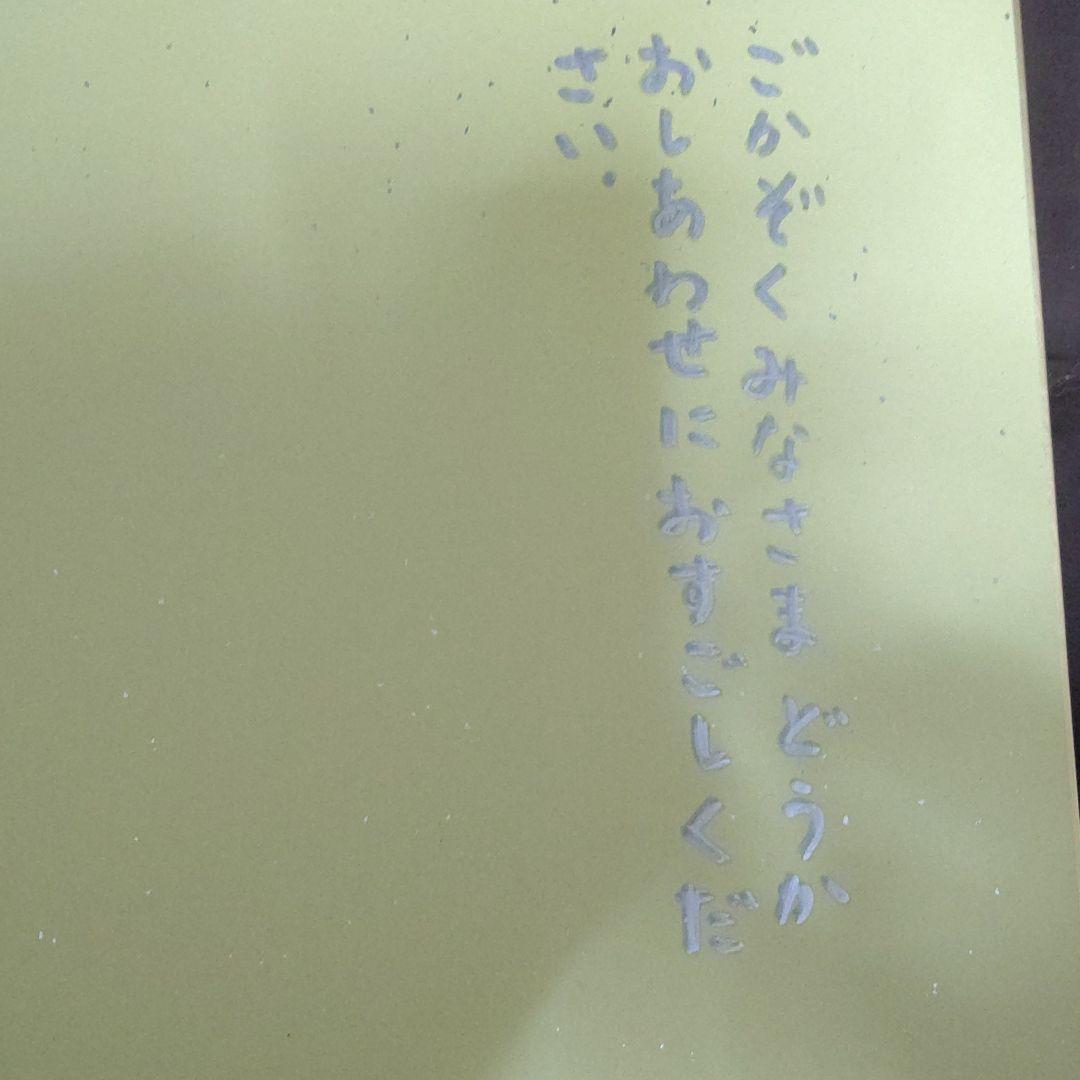 ごかぞくみなさま どうか
おしあわせに おすごしくだ
さい.